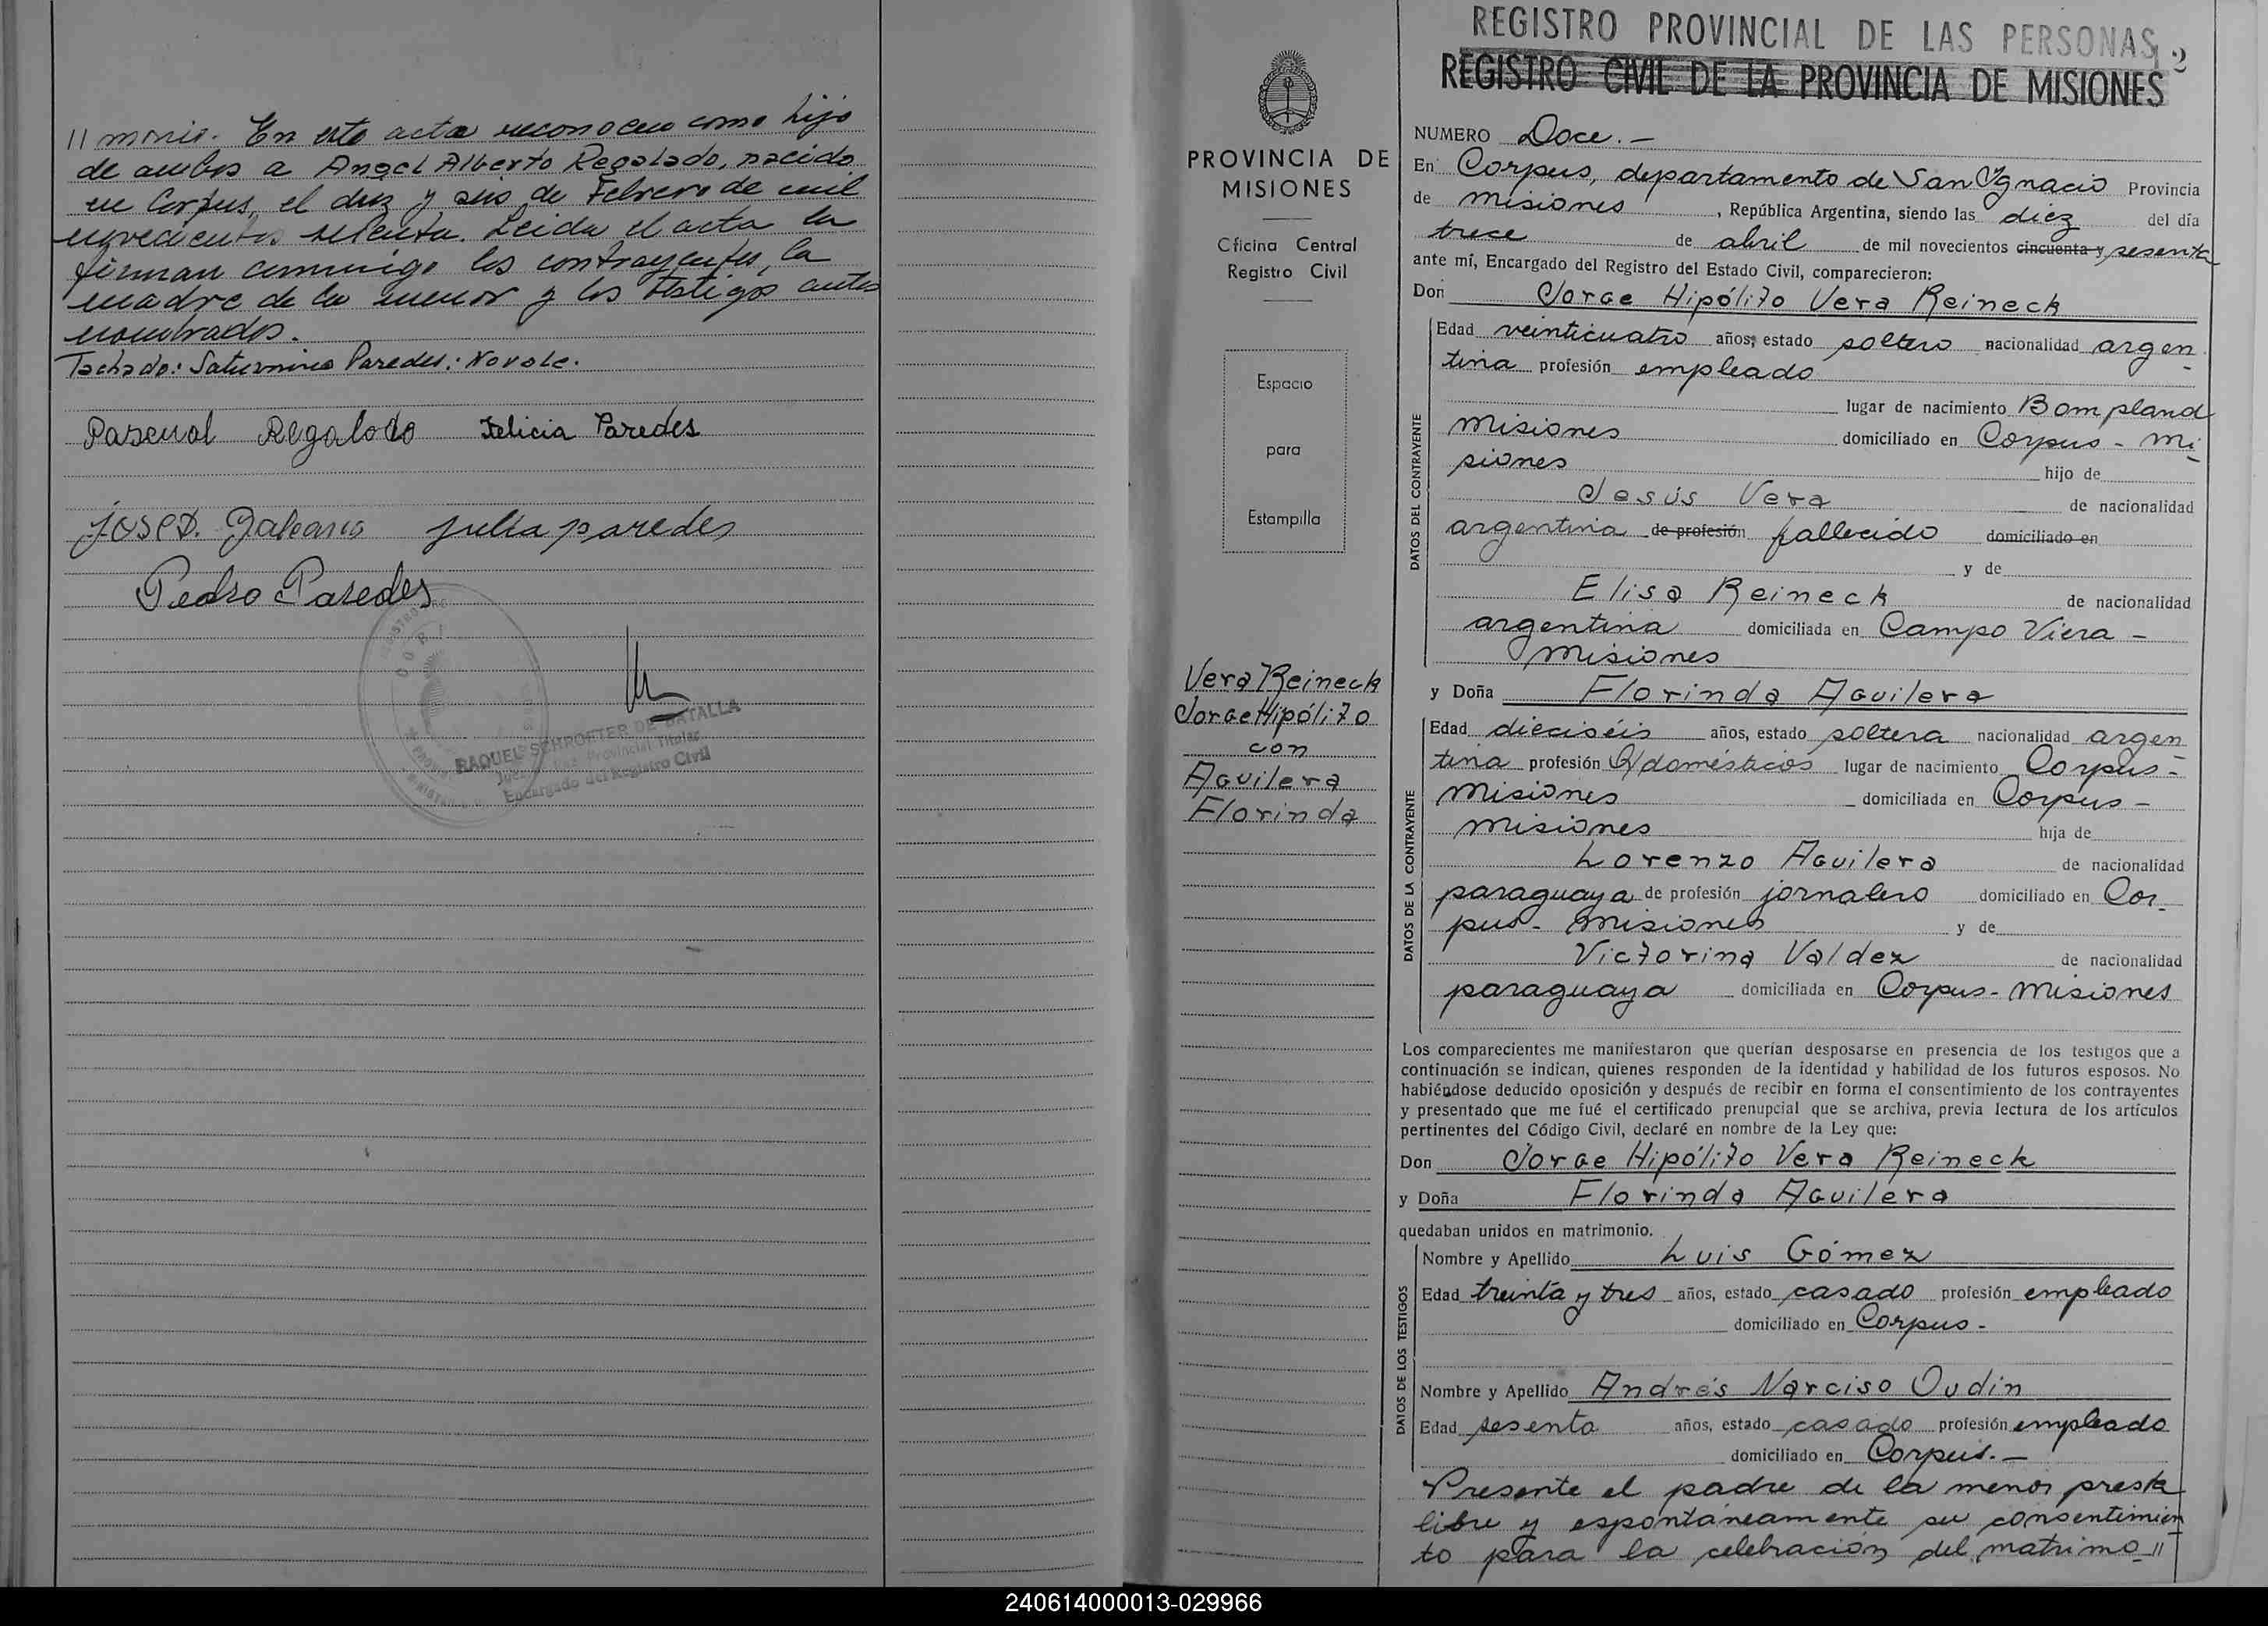 //monio. En este acta reconocen como hijo
de ambos a Angel Alberto Regalado, nacido
en Corpus, el diez y seis de Febrero de mil
novecientos sesenta. Leida el acta la
firman conmigo los contrayentes, la
madre de la menor y los testigos antes
nombrados.
Tachado: Saturnino Paredes: No vale.
Pascual Regalado Felicia Paredes
José D. Galeano julia paredes
Pedro Paredes
RAQUEL SCHROETER DE BATALLA
Juez de Paz Provincial Titular
Encargado del Registro Civil
PROVINCIA DE
MISIONES
Oficina Central
Registro Civil
Espacio
para
Estampilla
Vera Reineck
Jorge Hipólito
con
Aguilera
Florinda
REGISTRO PROVINCIAL DE LAS PERSONAS
12
REGISTRO CIVIL DE LA PROVINCIA DE MISIONES
NUMERO Doce.-
En Corpus, departamento de San Ignacio Provincia
de Misiones, República Argentina, siendo las diez del día
trece de abril de mil novecientos cincuenta y sesenta
ante mí, Encargado del Registro del Estado Civil, comparecieron:
Don Jorge Hipólito Vera Reineck
DATOS DEL CONTRAYENTE
Edad veinticuatro años; estado soltero nacionalidad argen
tina profesión empleado
lugar de nacimiento Bompland
Misiones domiciliado en Corpus - Mi
siones hijo de
Jesús Vera de nacionalidad
argentina de profesión fallecido domiciliado en
y de
Elisa Reineck de nacionalidad
argentina domiciliada en Campo Viera -
Misiones
y Doña Florinda Aguilera
DATOS DE LA CONTRAYENTE
Edad dieciséis años, estado soltera nacionalidad argen
tina profesión Q/domésticos lugar de nacimiento Corpus -
Misiones domiciliada en Corpus -
Misiones hija de
Lorenzo Aguilera de nacionalidad
paraguaya de profesión jornalero domiciliado en Cor-
pus - Misiones y de
Victorina Valdez de nacionalidad
paraguaya domiciliada en Corpus - Misiones
Los comparecientes me manifestaron que querían desposarse en presencia de los testigos que a
continuación se indican, quienes responden de la identidad y habilidad de los futuros esposos. No
habiéndose deducido oposición y después de recibir en forma el consentimiento de los contrayentes
y presentado que me fué el certificado prenupcial que se archiva, previa lectura de los artículos
pertinentes del Código Civil, declaré en nombre de la Ley que:
Don Jorge Hipólito Vera Reineck
y Doña Florinda Aguilera
quedaban unidos en matrimonio.
DATOS DE LOS TESTIGOS
Nombre y Apellido Luis Gómez
Edad treinta y tres años, estado casado profesión empleado
domiciliado en Corpus -
Nombre y Apellido Andrés Narciso Oudin
Edad sesenta años, estado casado profesión empleado
domiciliado en Corpus.-
Presente el padre de la menor presta
libre y espontáneamente su consentimien
to para la celebración del matrimo//
240614000013-029966